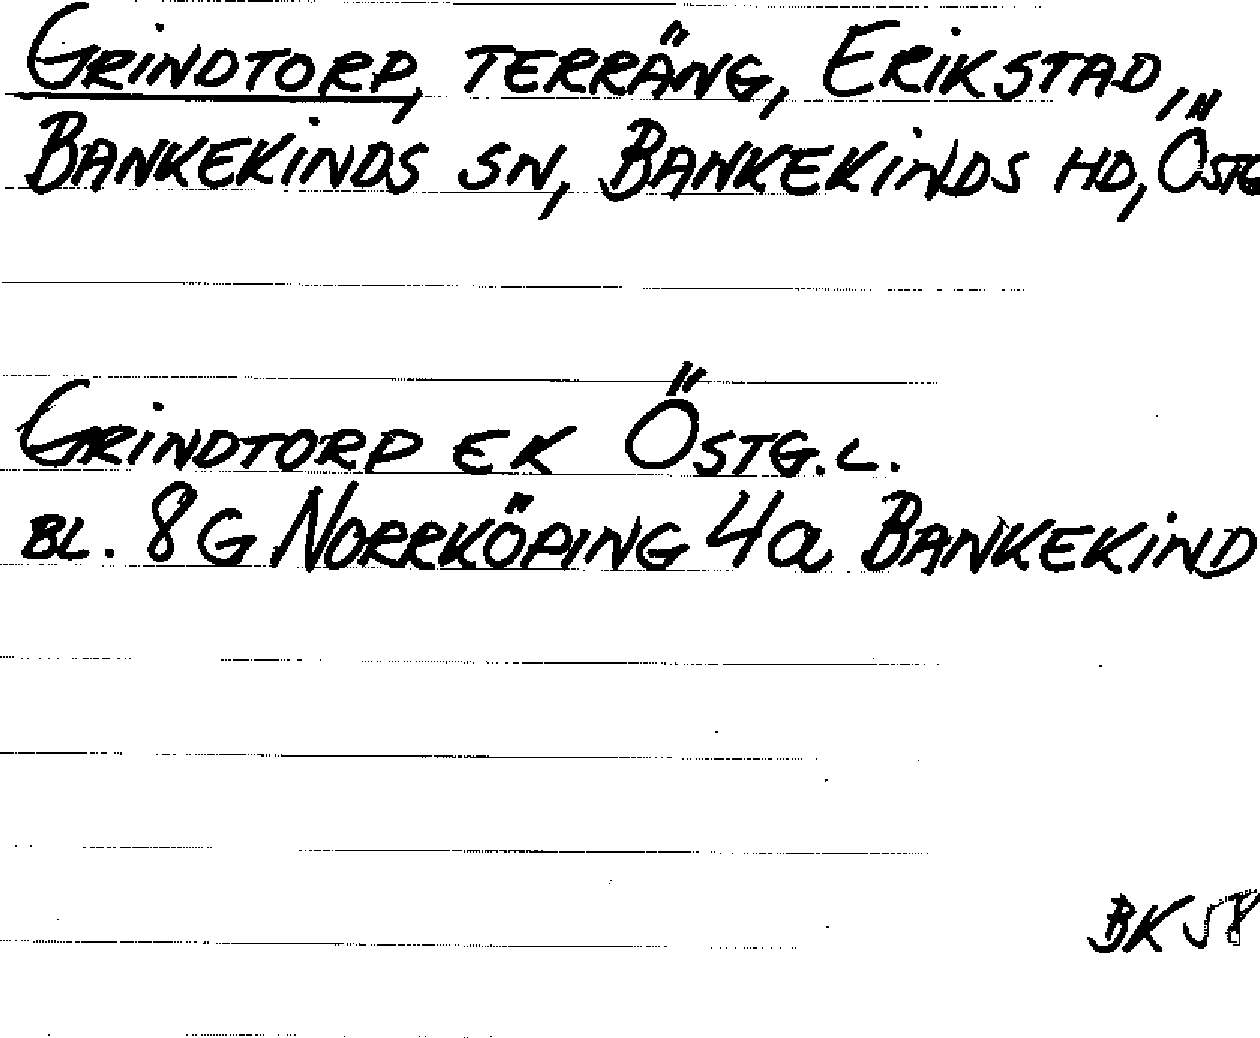 GRINDTORP, TERRÄNG, ERIKSTAD,
BANKEKINDS SN, BANKEKINDS HD, ÖSTG
GRINDTORP EK ÖSTG. L.
BL. 8G NORRKÖPING 4a BANKEKIND
BK